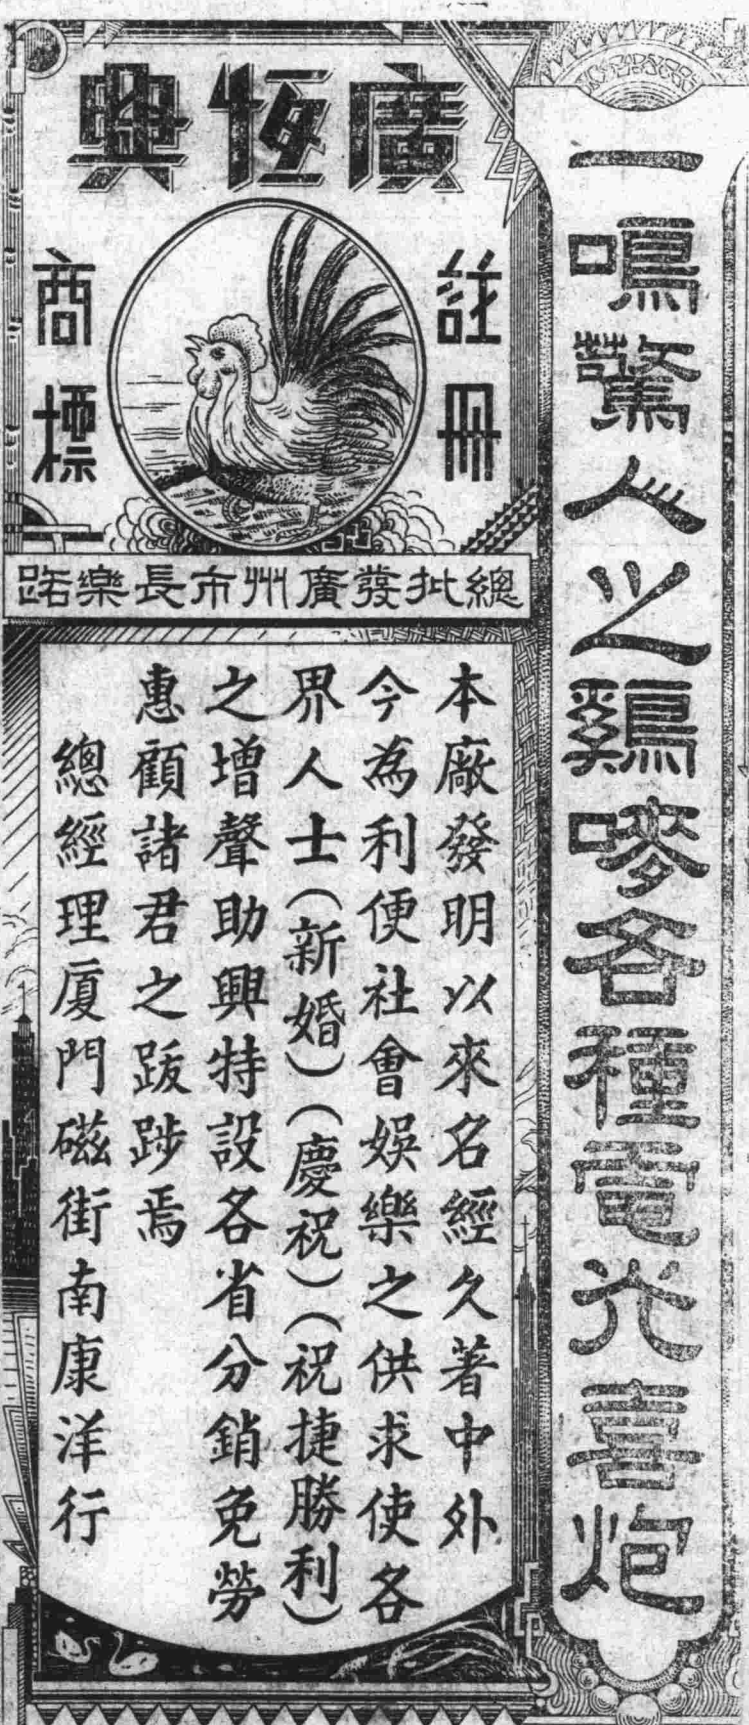 一鳴驚人之鷄嘜各種電光喜炮
廣恆興
註冊
商標
總批發廣州市長樂路
本廠發明以來名經久著中外
今為利便社會娛樂之供求使各
界人士(新婚)(慶祝)(祝捷勝利)
之增聲助興特設各省分銷免勞
惠顧諸君之跋涉焉
總經理廈門磁街南康洋行